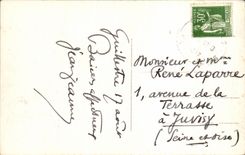 Guillestre 17 août
Baisers affectueux
Jean Jeanne
Monsieur et Mme
René Laparre
1, avenue de la
Terrasse
à Juvisy
(Seine et Oise)
30c